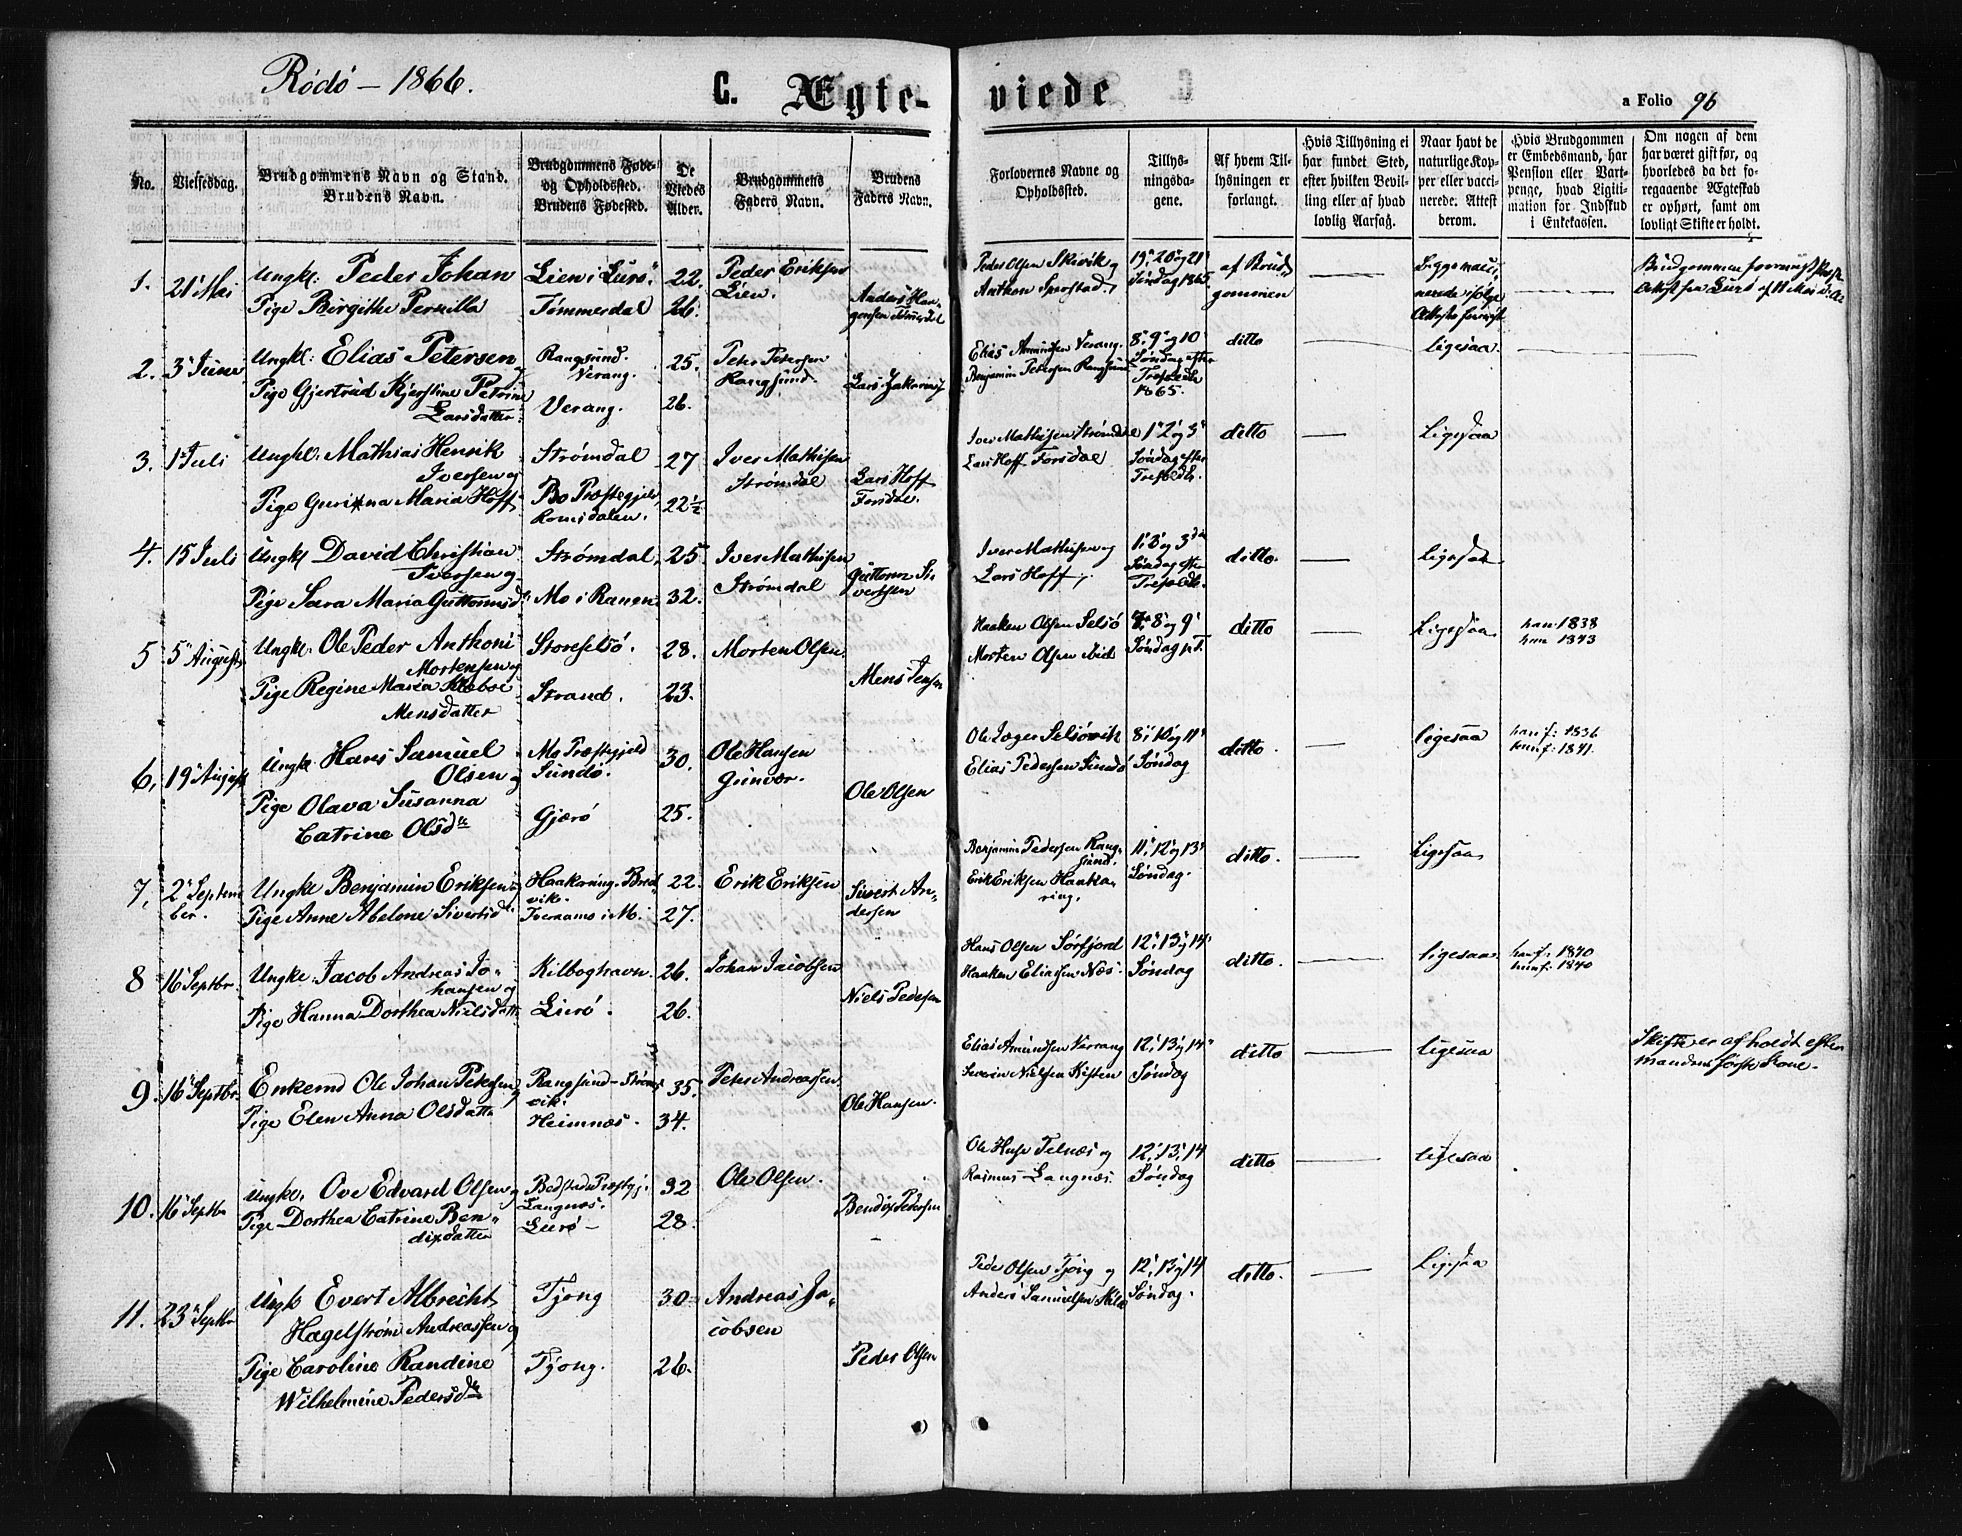 Rödö – 1866.
C. Ægte-
viede
a Folio 96
No.
Vielsesdag.
Brudgommens Navn og Stand.
Brudens Navn.
Brudgommens Føde-
og Opholdssted.
Brudens Fødested.
De
Viedes
Alder.
Brudgommens
Faders Navn.
Brudens
Faders Navn.
Forlovernes Navne og
Opholdssted.
Tillys-
ningsda-
gene.
Af hvem Til-
lysningen er
forlangt.
Hvis Tillysning ei
har fundet Sted,
efter hvilken Bevil-
ling eller af hvad
lovlig Aarsag.
Naar havt de
naturlige Kop-
per eller vacci-
nerede. Attest
derom.
Hvis Brudgommen
er Embedsmand, har
Pension eller Vart-
penge, hvad Ligiti-
mation for Indskud
i Enkekassen.
Om nogen af dem
har været gift før, og
hvorledes da det fo-
regaaende Ægteskab
er ophørt, samt om
lovligt Skifte er holdt.
1. 21 Mai
Ungkl: Peder Johan
Pige Birgithe Pernilla
Lien i Lurö
Tømmerdal
22.
26.
Peder Eriksen
Lien.
Peder Olsen Skivik og
Anthon
19, 20 og 21
Søndag 1865
af Brud
gommen
Begge vacci
nerede ifølge
2. 3 Juni
Ungkl: Elias Petersen
Pige Gjertrud Kjerstine Petrine
Larsdatter
Rangsund.
Verang.
Verang.
25.
26.
Peter Petersen
Rangsund.
Elias Amundsen Verang.
Benjamin Petersen Rangsund
8, 9 og 10
Søndag efter
1865.
ditto
ligesaa
3. 1 Juli
Ungkl. Mathias Henrik
Iversen og
Pige Gurina Maria Hoff
Strømdal
Bo Præstegjeld
Romsdalen.
27
22½
Iver Mathisen
Strømdal
Lars Hoff
Forsdal.
Iver Mathisen Strømdal
Lars Hoff Forsdal
1, 2 og 3
Søndag efter
ditto
Ligesaa
4. 15 Juli
Ungkl David Christian
Iversen og
Pige Sara Maria Guttormsd
Strømdal
Mo i Ranen
25
32.
Iver Mathisen
Strømdal
Guttorm Si
vertsen
Iver Mathisen og
Lars Hoff
Søndag
ditto.
ligesaa
5 5 August
Ungkl. Ole Peder Anthoni
Mortensen og
Pige Regine Maria
Mensdatter
Storeselsö.
Strand.
28.
23.
Morten Olsen.
Mens Jensen
Haaken Olsen Selsö
Morten Olsen
8 og 9
Søndag
ditto
Ligesaa
han 1838
hun 1843
6. 19 August
Ungk. Hans Samuel
Olsen og
Pige Olava Susanna
Catrine Olsdtr
Mo Præstegjeld
Sundö.
Gjærö
30.
25.
Ole Hansen
Ole Olsen
Ole Jæger Selsövik
Elias Pedersen Sundö
Søndag
ditto.
ligesaa
han f: 1836
hun f: 1841.
7. 2 Septem
ber.
Ungkl Benjamin Eriksen og
Pige Anne Abelone Sivertsd
22.
27.
Erik Eriksen
Sivert An-
dersen
Benjamin Pedersen Rang-
sund.
Erik Eriksen Haakva-
ring.
11, 12 og 13
Søndag.
ditto.
Ligesaa
8 16 Septbr.
Ungkl. Jacob Andreas Jo-
hansen og
Pige Hanna Dorthea Nielsdatt
Kilboghavn.
Lurö.
26.
26.
Johan Jacobsen
Niels Pedersen
Hans Olsen Sörfjord
Haaken Eliassen Næs
12, 13 og 14
Søndag
ditto.
ligesaa
han f: 1840
hun f: 1840
9. 16 Septbr.
Enkemd Ole Johan Petersen og
Pige Elen Anna Olsdatt
Rangsund – Strøms
vik.
Heimnæs.
35.
34.
Peter Andreassen
Ole Hansen.
Elias Amundsen Verrang
Severin Nielsen Kisten
12, 13 og 14
Søndag
ditto
ligesaa
Skifte er afholdt efter
mandens første Kone.
10. 16 Septbr
Ungkl. Ove Edvard Olsen og
Pige Dorthea Catrine Ben-
dixdatter
Langnæs.
Lurö –
32
28.
Ole Olsen.
Bendix Petersen
Ole Telnæs og
Rasmus Langnæs.
12, 13, 14
Søndag
ditto
ligesaa
11. 23 Septbr
Ungk Evert Albrecht
Hagelstrøm Andreassen og
Pige Caroline Randine
Wilhelmine Pedersdtr
Tjong
Tjong.
30
26.
Andreas Ja-
cobsen
Peder Olsen
Peder Olsen Tjong og
Anders Samuelsen
12, 13 og 14
Søndag.
ditto.
Ligesaa